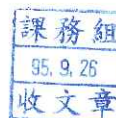 課務組
95.9.26
收文章